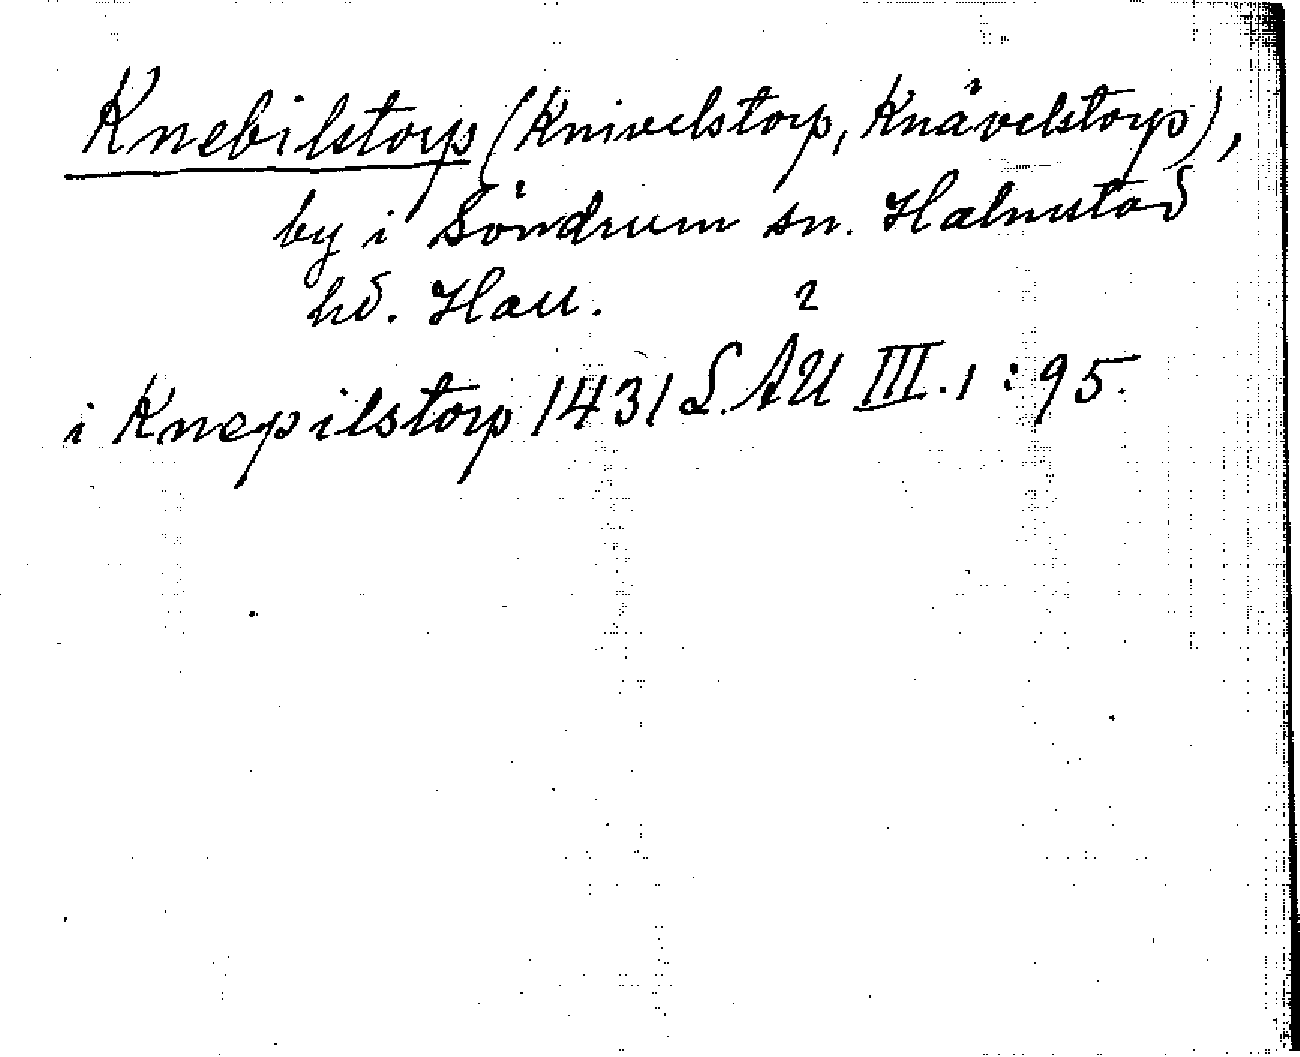 Knebilstorp (Knivelstorp, Knävelstorp),
by i Söndrum sn. Halmstad
hd. Hall.
i Knepilstorp 1431 2 L. ÅU III. 1 : 95.